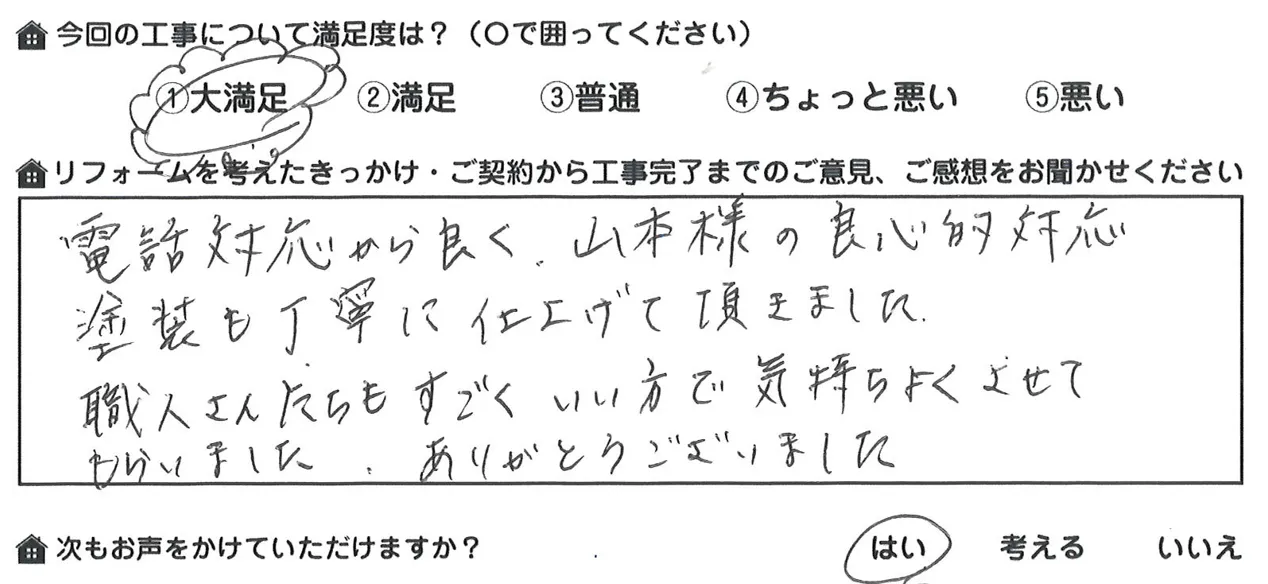 今回の工事について満足度は？（〇で囲ってください）
①大満足 ②満足 ③普通 ④ちょっと悪い ⑤悪い
リフォームを考えたきっかけ・ご契約から工事完了までのご意見、ご感想をお聞かせください
電話対応から良く、山本様の良心的対応
塗装も丁寧に仕上げて頂きました。
職人さんたちもすごくいい方で気持ちよくさせて
もらいました。ありがとうございました
次もお声をかけていただけますか？ はい 考える いいえ